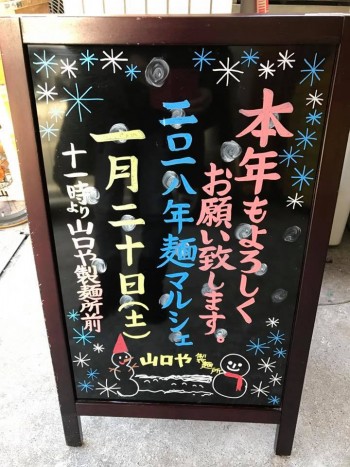 本年もよろしく
お願い致します。
二〇一八年麺マルシェ
一月二十日(土)
十一時より山口や製麺所前
山口や製麺所